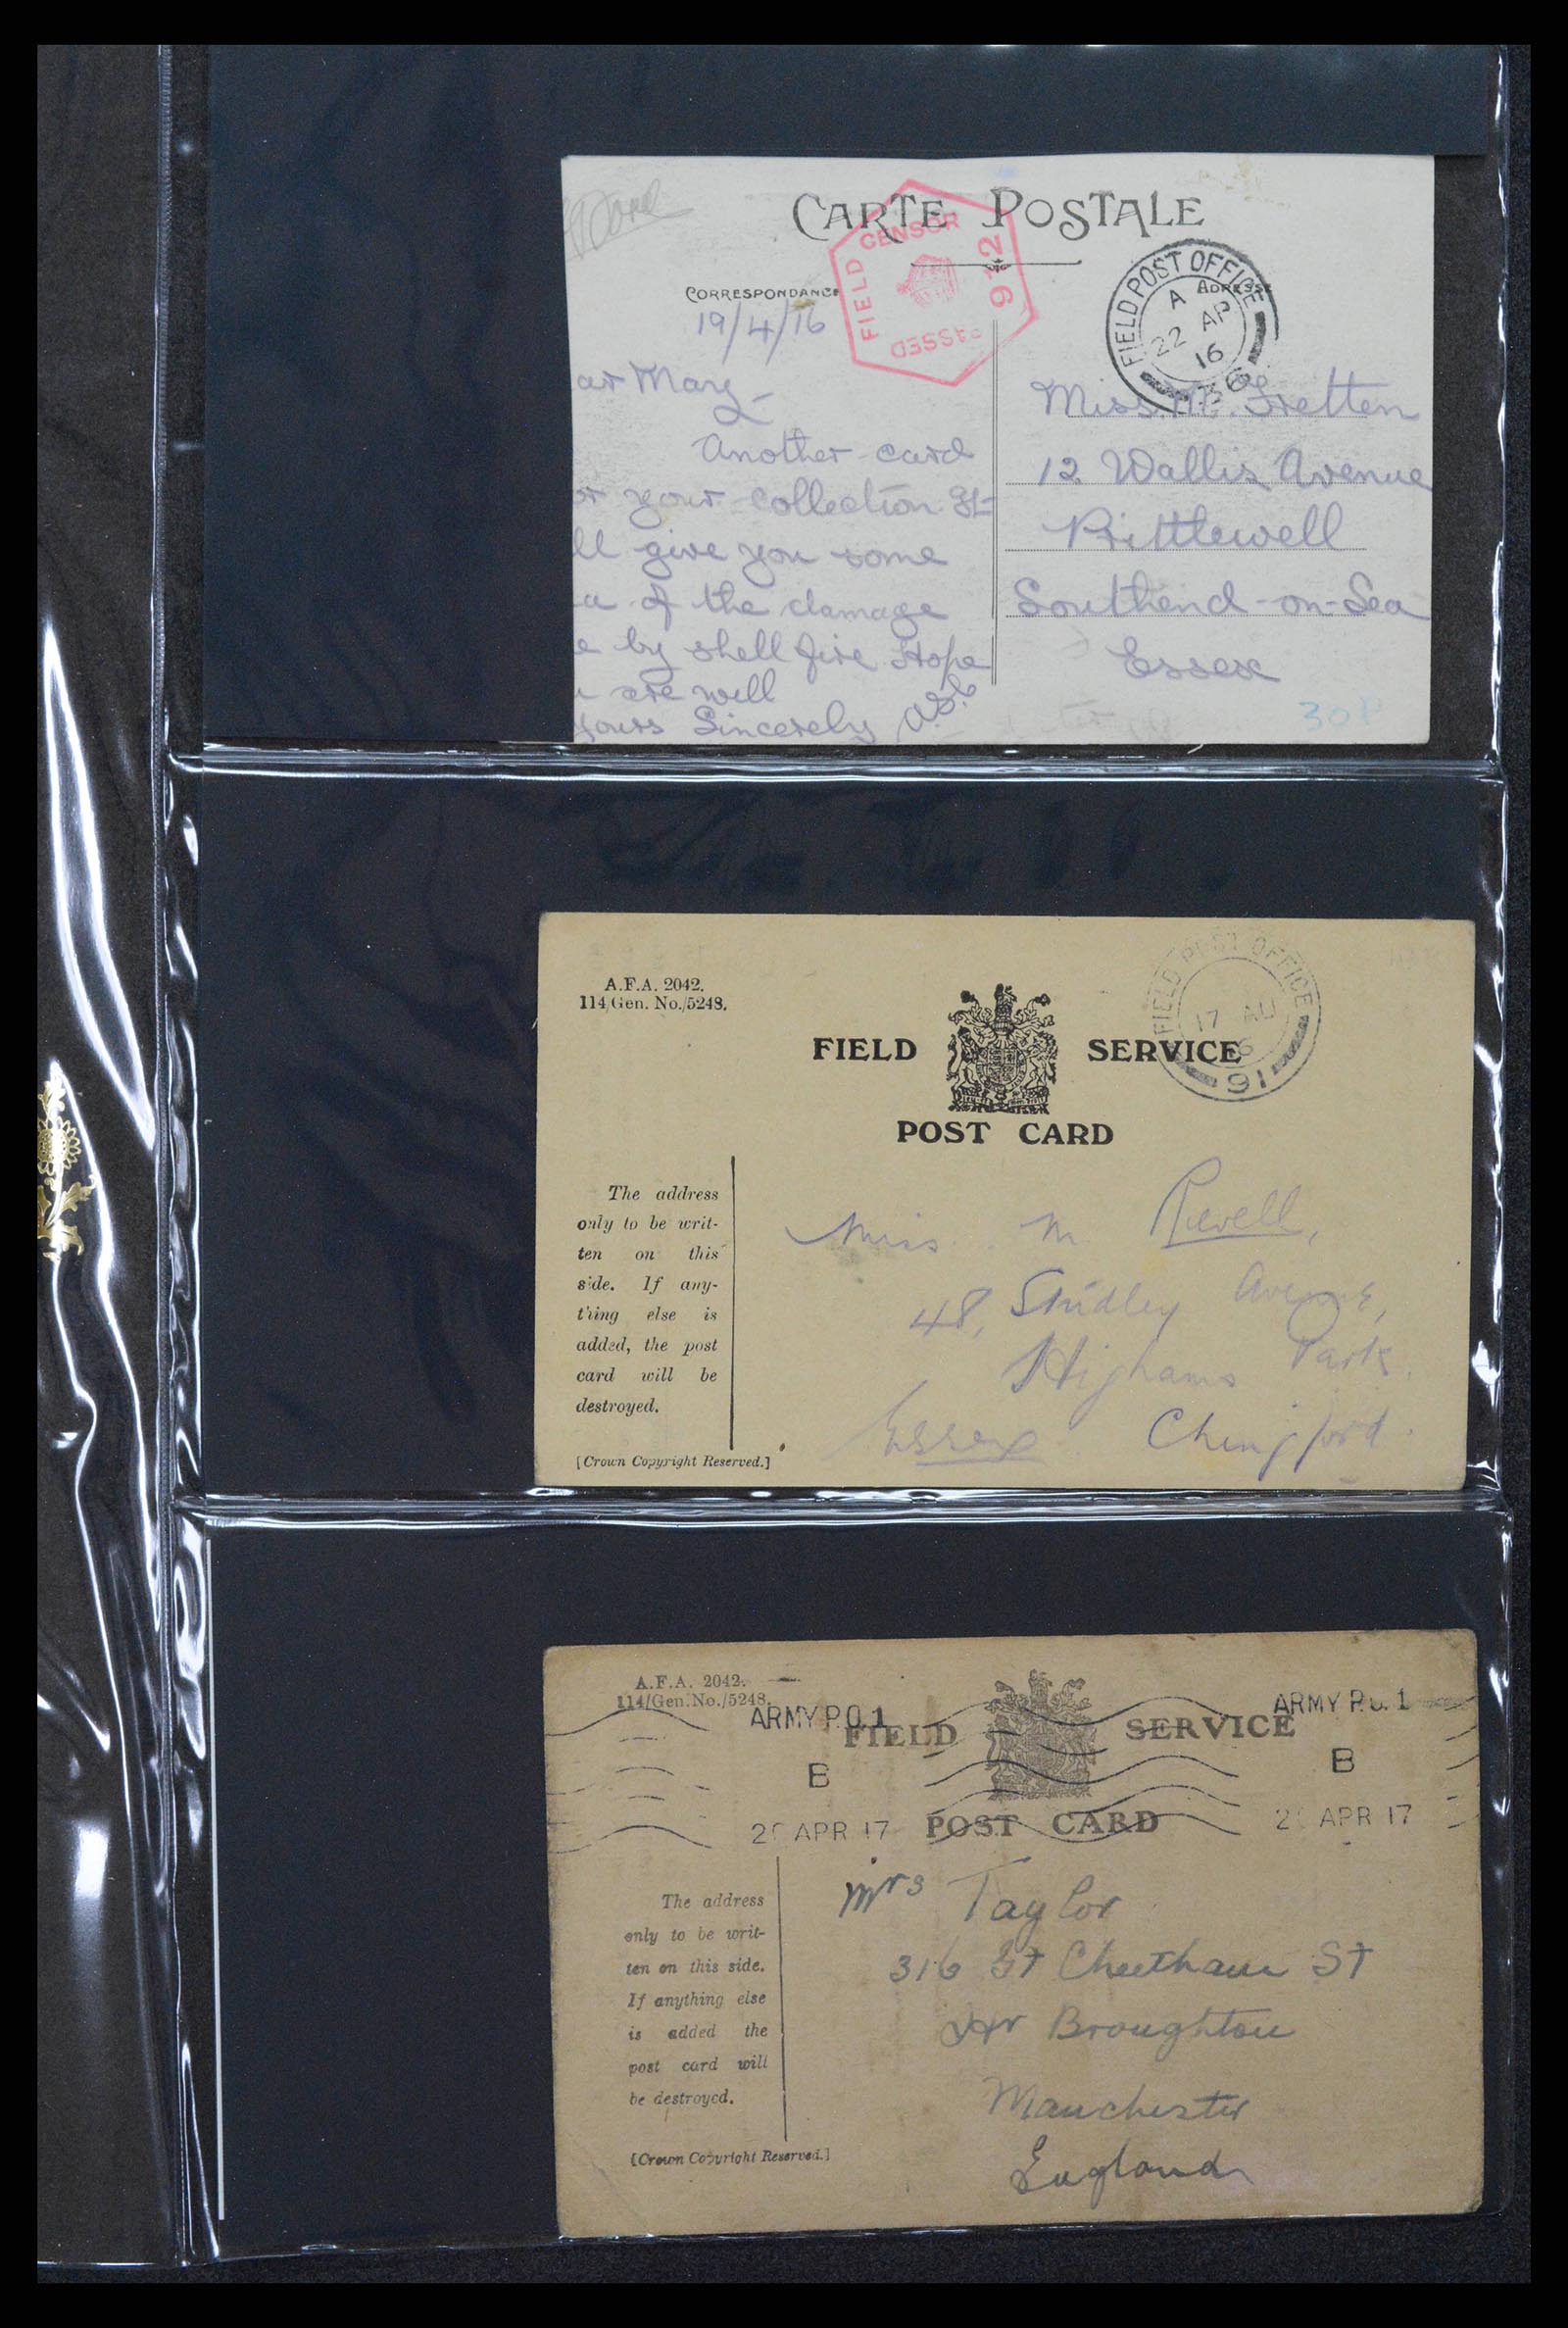 CARTE POSTALE
CORRESPONDANCE
ADRESSE
FIELD CENSOR
PASSED
912
FIELD POST OFFICE
A
22 AP
16
19/4/16
ar Mary
Another card
or your collection It
ll give you some
a of the damage
e by shell fire Hope
u are well
yours Sincerely
Miss M.
12 Wallis Avenue
Prittlewell
Southend-on-Sea
Essex
30P
A.F.A. 2042.
114/Gen. No./5248.
FIELD SERVICE
POST CARD
FIELD POST OFFICE
17 AU
91
The address
only to be writ-
ten on this
side. If any-
thing else is
added, the post
card will be
destroyed.
[Crown Copyright Reserved.]
Miss M Revell,
48, Studley Avenue,
Highams Park.
Essex Chingford.
A.F.A. 2042.
114/Gen. No./5248.
ARMY P.O. 1
B
APR 17
FIELD SERVICE
POST CARD
ARMY P.O. 1
B
APR 17
The address
only to be writ-
ten on this side.
If anything else
is added the
post card will
be destroyed.
[Crown Copyright Reserved.]
Mrs Taylor
316 Gt Cheetham St
Hr Broughton
Manchester
England